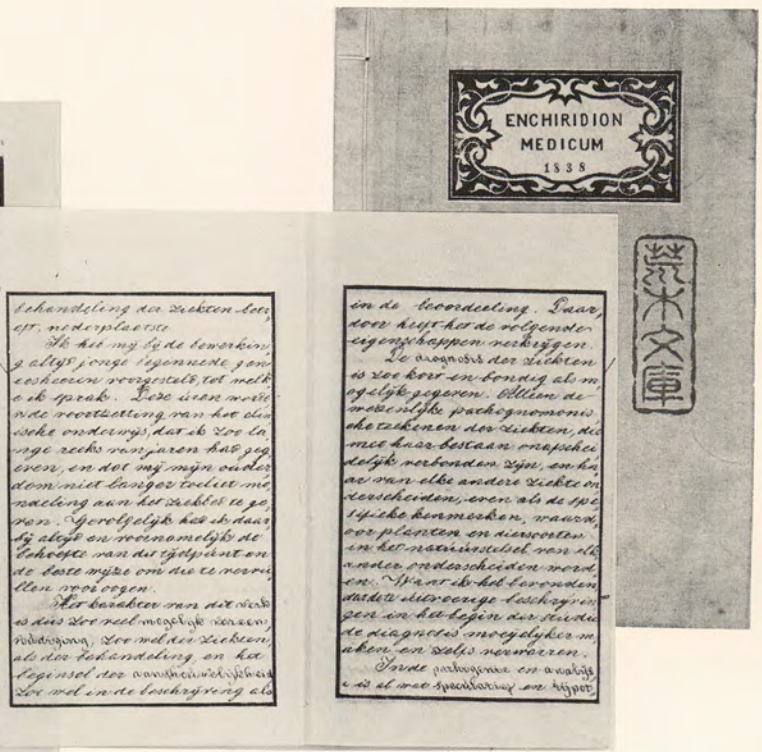 ENCHIRIDION
MEDICUM
1838
文庫
behandeling der ziekten betr,
eft. nederplaetste
Ik heb my by de bewerkin
g altyd jonge beginnede gen
eesheeren voorgesteld, tot welk
e ik sprak. Deze uren worde
n de voortzetting van het clin
ische onderwys, dat ik zoo la
nge reeks van jaren had geg
even, en dat my myn ouder
dom niet langer toeliet mo
ndeling aan het ziekbed te ge
ven. Gevolgelyk had ik daar
by altyd en voornamelyk de
behoefte van dit tydpunt en
de beste wyze om die te vervu
llen voor oogen.
Het karakter van dit werk
is dus zoo veel mogelyk vereen,
vuldiging, zoo wel der ziekten,
als der behandeling, en het
beginsel der
zoo wel in de beschryving als
in de beoordeeling. Daar,
door heeft het de volgende
eigenschappen verkrygen.
De diagnosis der ziekten
is zoo kort en bondig als m
ogelyk gegeven. Alleen de
wezenlyke pathognomonis
che teekenen der ziekten, die
met haar bestaan onafschei
delyk verbonden zyn, en ha
ar van elke andere ziekte on
derscheiden, even als de spe
sifieke kenmerken, waard,
oor planten en diersoorten
in het natuurstelsel van elk
ander onderscheiden word
en. Want ik heb bevonden
dat deze uitvoerige beschryvin
gen in het begin der studie
de diagnosis moeyelyker m
aken en zelfs verwarren.
In de pathogenie en analys
e is al wat speculatief en hypot,